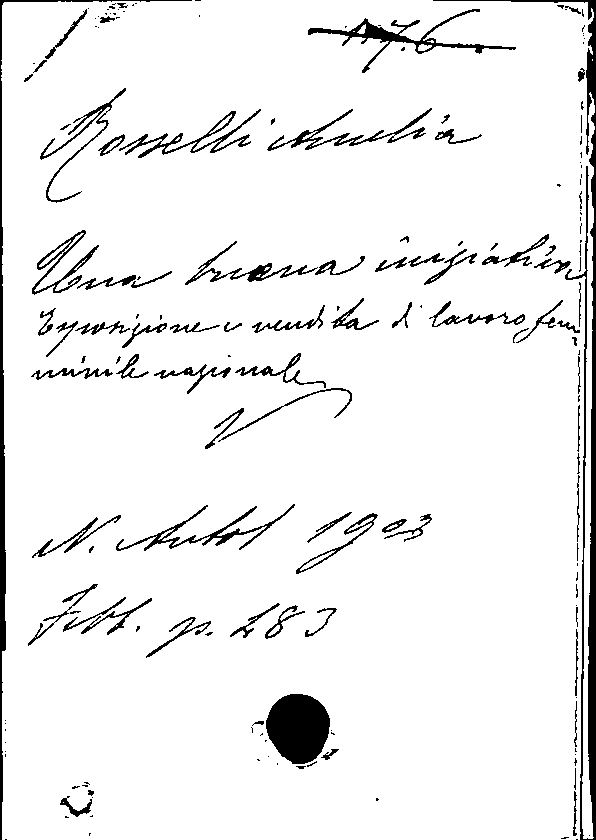 Rosselli Amelia
Una buona iniziativa
Esposizione e vendita di lavoro fem-
minile nazionale
N. Antol 1903
Febb. p. 283